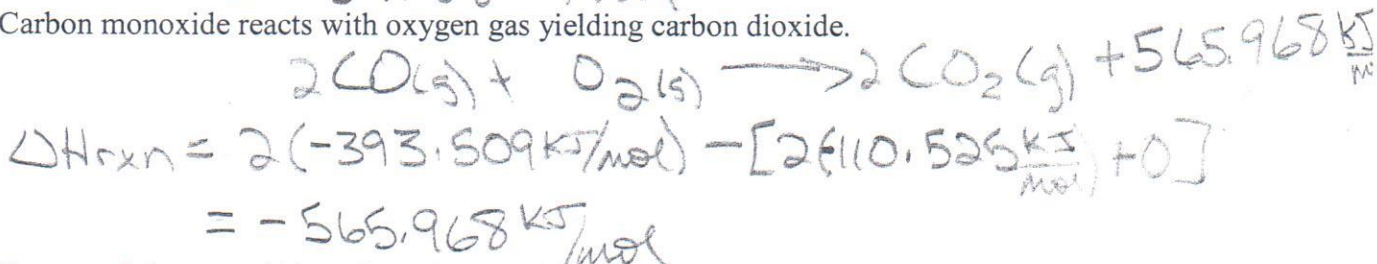 Carbon monoxide reacts with oxygen gas yielding carbon dioxide.
2CO(g) + O2(g) ⟶ 2CO2(g) + 565.968 kJ/m
ΔHrxn = 2(-393.509 kJ/mol) - [2(-110.525 kJ/mol) + 0]
= -565.968 kJ/mol